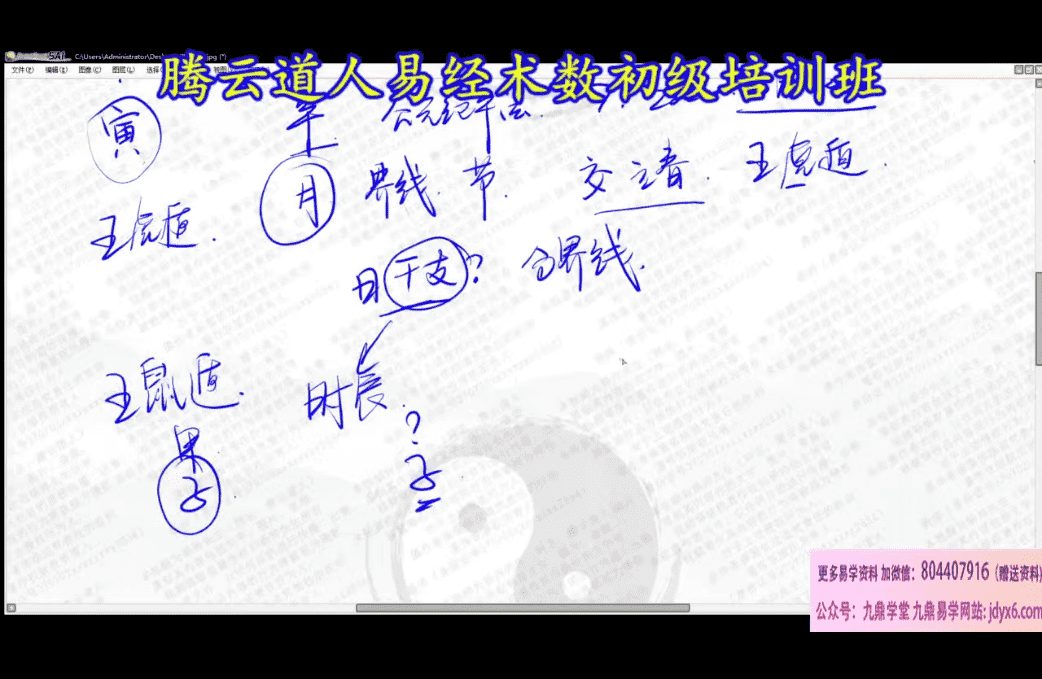 C:\Users\Administrator\Des
文件(F) 编辑(E) 图像(C) 图层(L) 选择
腾云道人易经术数初级培训班
寅 年 公元纪年法.
月 界线. 节. 交立春. 五虎遁.
五虎遁.
日干支? 分界线.
五鼠遁. 时辰.
?
子 子
更多易学资料 加微信：804407916（赠送资料)
公众号：九鼎学堂 九鼎易学网站: jdyx6.com